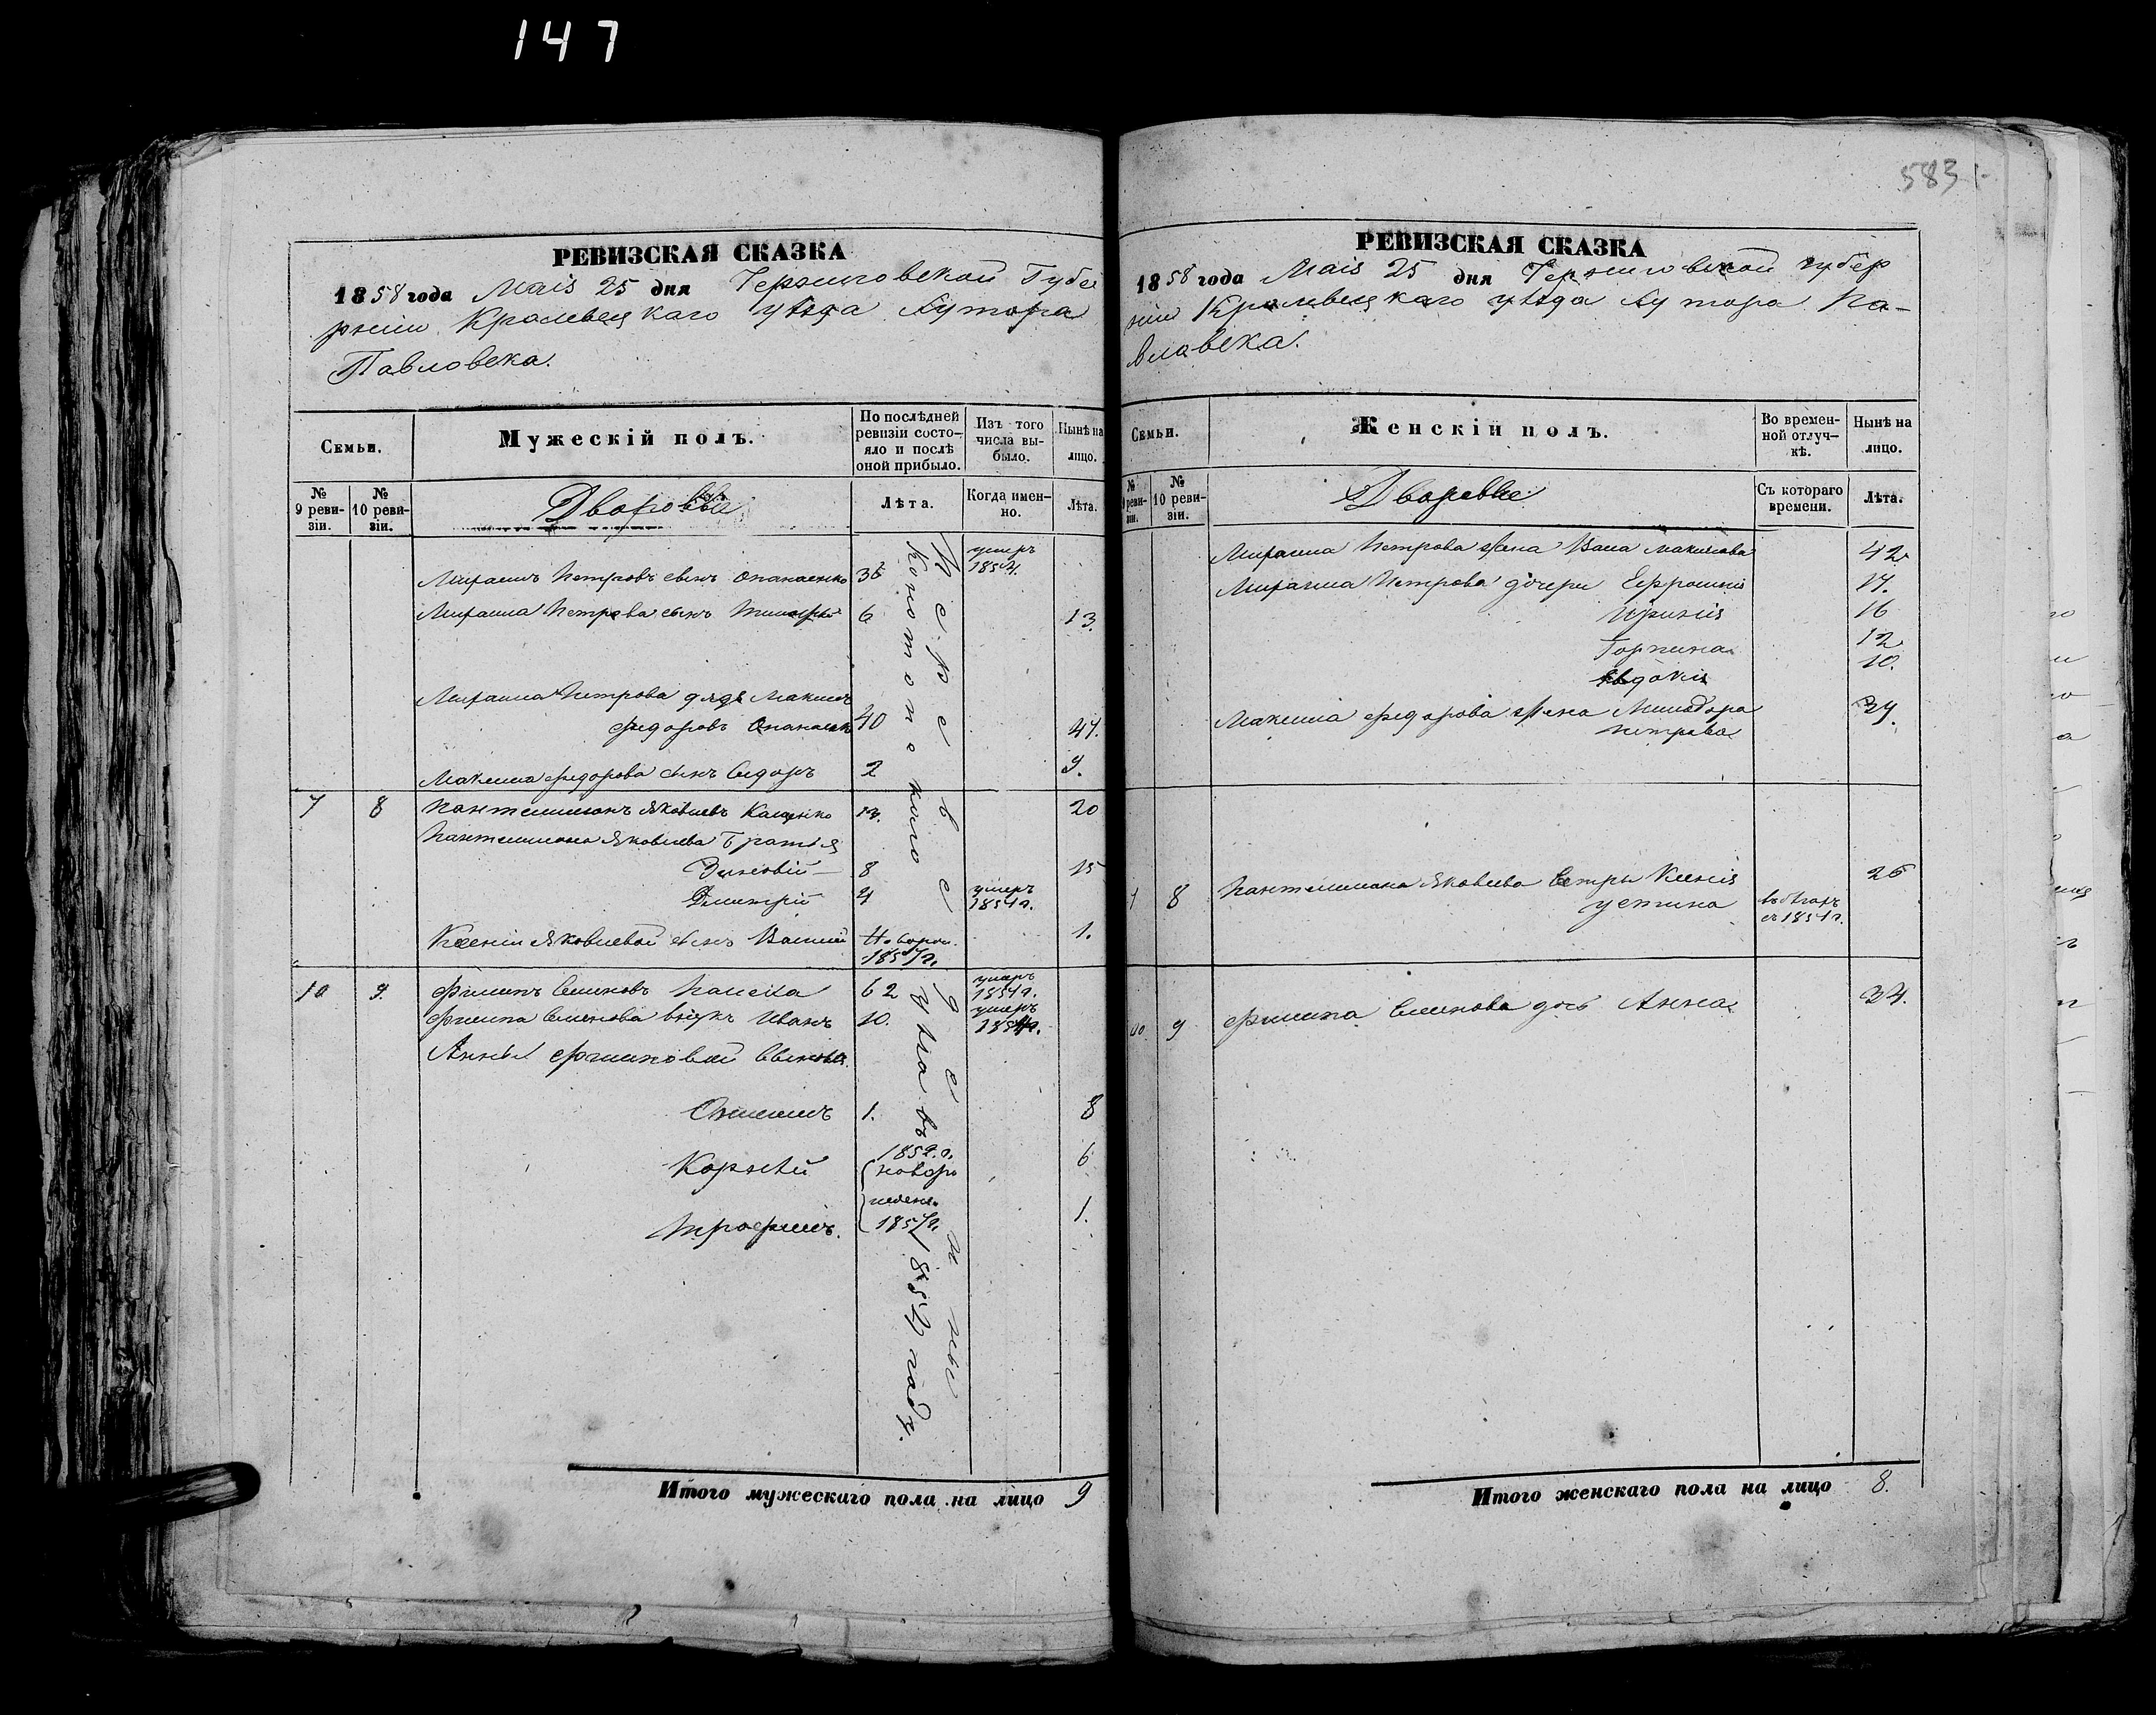 147
583
РЕВИЗСКАЯ СКАЗКА
1858 года Маія 25 дня Черниговской Губе
рніи Кролевецкаго уѣзда Хутора
Павловска.
Семьи.
Мужескій полъ.
По послѣдней ревизіи состояло и послѣ оной прибыло.
Изъ того числа выбыло.
Нынѣ на лицо.
№ 9 ревизіи.
№ 10 ревизіи.
Дворовые
Лѣта.
Когда именно.
Лѣта.
Петровъ сынъ Опанасенко 36 умеръ 1854.
Петрова сынъ 6 13.
Петрова дядя Максимъ
Федоровъ Опанасенко 40 47.
Максима Федорова сынъ Сидоръ 2 9.
7 8 Пантелимонъ Яковлевъ 13. 20
Пантелимона Яковлева Братья
Зиновій 8 15
Дмитрій 4 умеръ 1854г.
Ксеніи Яковлевой сынъ Василій Новорож. 1857г. 1.
10 9. Филипъ Семеновъ 62 умеръ 1854г.
Филипа Семенова внукъ Иванъ 10. умеръ 1854г.
Анны Филиповой Сыновья
Онисимъ 1. 8
Корнѣй 1852.г. 6
новоро
жден.
Трофимъ. 1857г. 1.
Переведены
изъ Конотопскаго уѣзда въ 1854 году.
Итого мужескаго пола на лицо 9
РЕВИЗСКАЯ СКАЗКА
1858 года Маія 25 дня Черниговской губер
ніи Кролевецкаго уѣзда Хутора Па-
вловска.
Семьи.
Женскій полъ.
Во временной отлучкѣ.
Нынѣ на лицо.
№ 9 ревизіи.
№ 10 ревизіи.
Дворовые
Съ котораго времени.
Лѣта.
Петрова жена Максимова 42
Петрова дочери Ефросинія 17.
Иринія 16
Горпина 12
Евдокія 10.
Максима Федорова жена Минодора
Петрова 39.
7 8 Пантелимона Яковлева Сестры Ксенія 26
Устина въ бѣгахъ съ 1851г.
10 9 Филипа Семенова дочь Анна 34.
Итого женскаго пола на лицо 8.